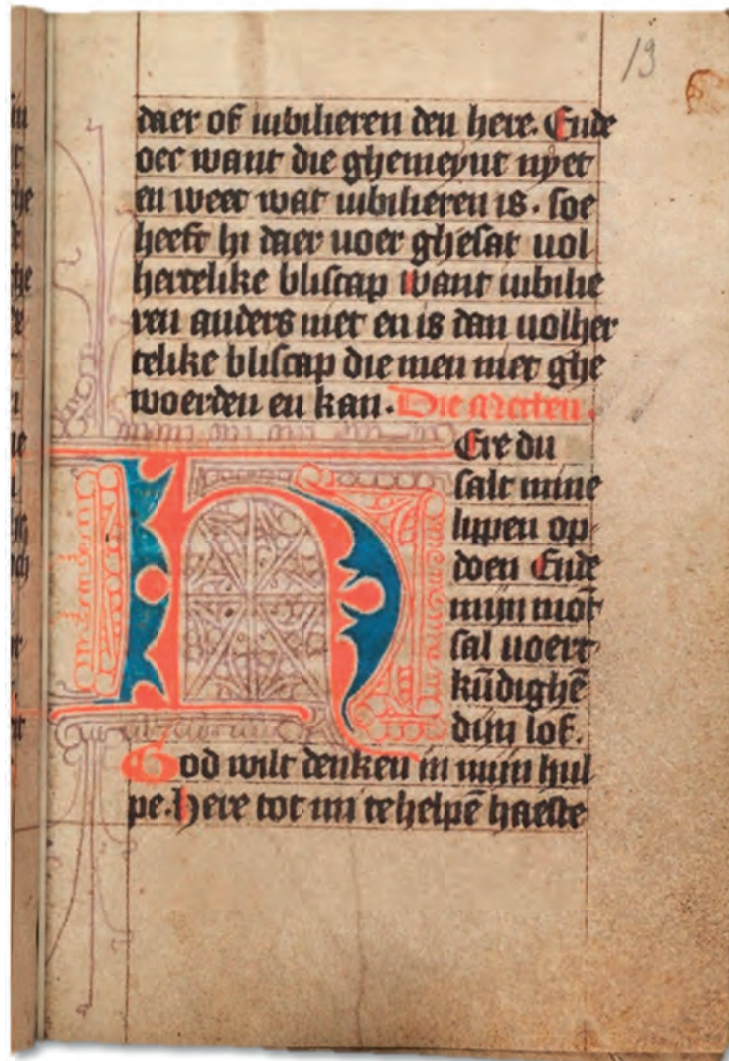 19
daer of iubilieren den here. Ende
oec want die ghemeynt nyet
en weet wat iubilieren is. soe
heeft hi daer uoer ghesat uol
hertelike bliscap want iubilie
ren anders niet en is dan uolher
telike bliscap die men niet ghe
woerden en kan. Die Metten.
HEre du
salt mine
lippen op
doen Ende
mijn mōt
sal uoert
kūdighē
dijn lof.
God wilt denken in mijn hul
pe. Here tot mi te helpē haeste